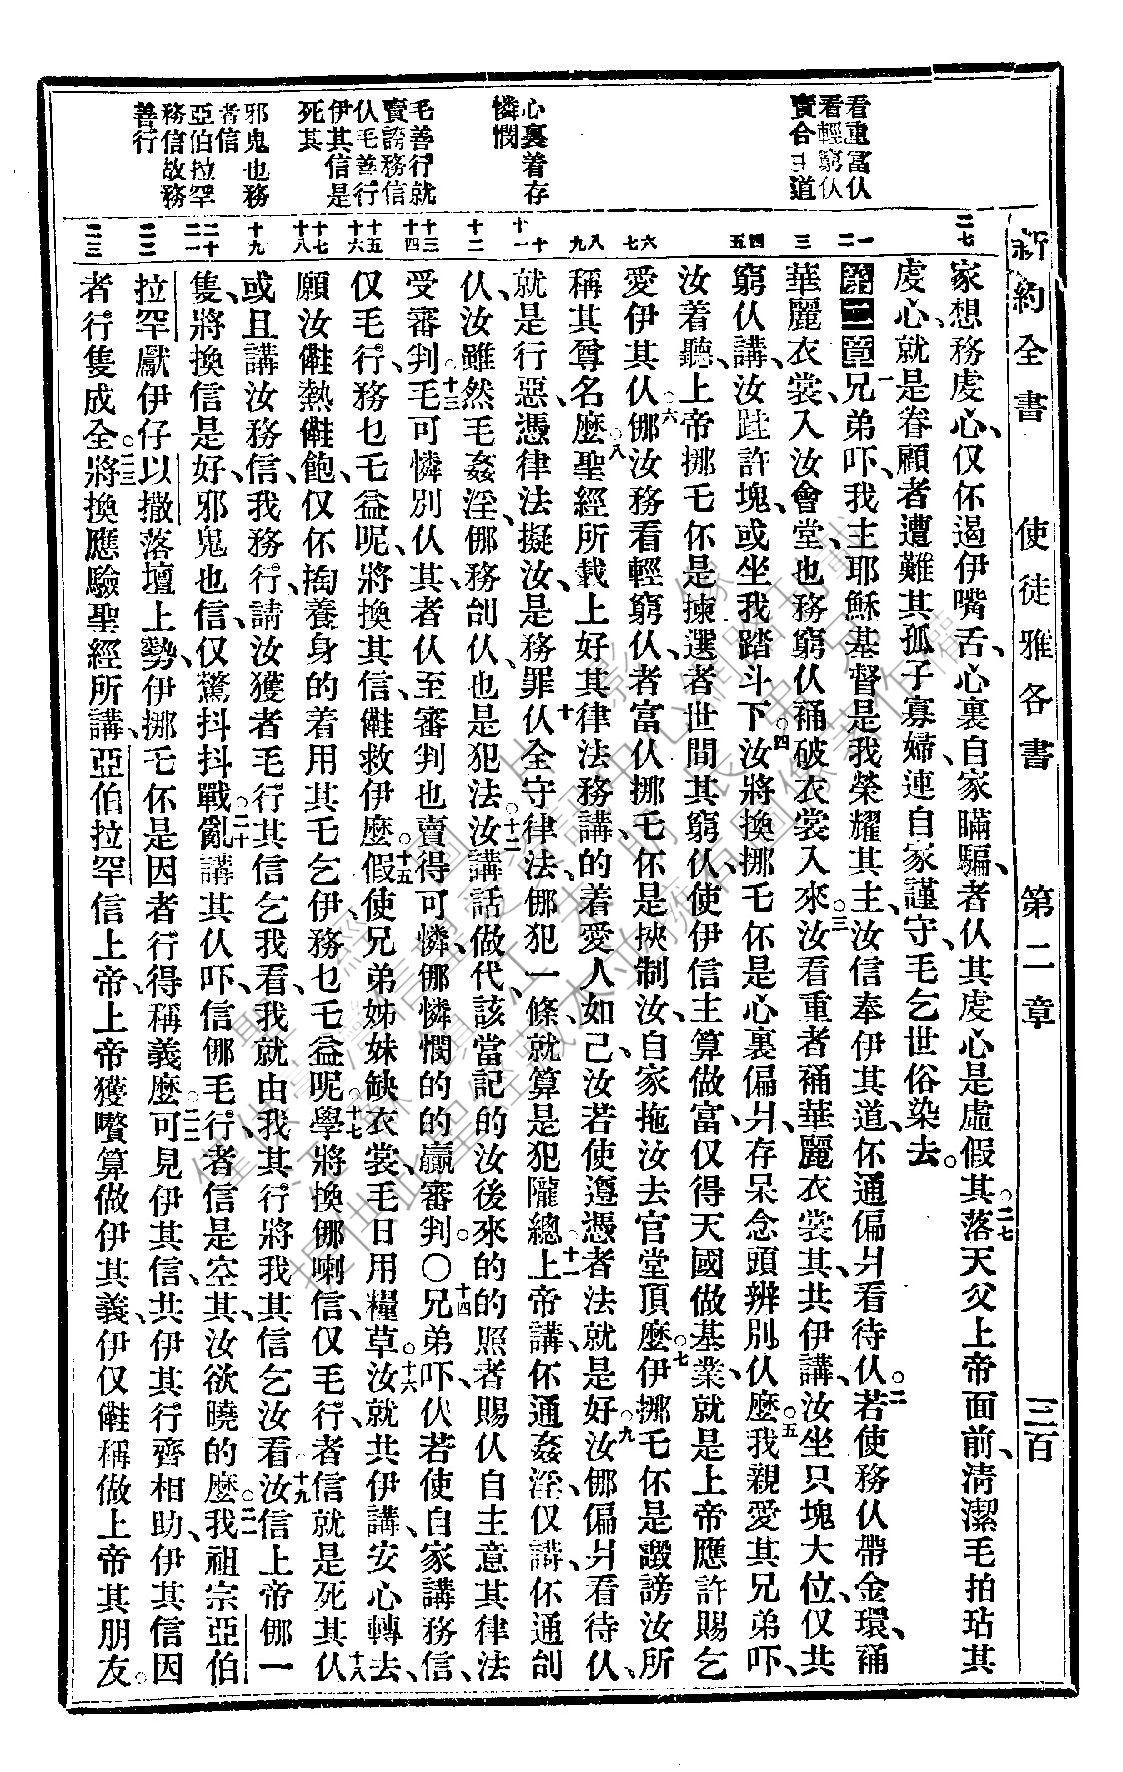 新約全書　使徒雅各書　第二章　三百
看重富仈
看輕窮仈
賣合主道
心裏着存
憐憫
毛善行就
賣謗務信
仈毛善行
伊其信是
死其
邪鬼也務
者信
亞伯拉罕
務信故務
善行
二七
一
二
三
四
五
六
七
八
九
十
十一
十二
十三
十四
十五
十六
十七
十八
十九
二十
二一
二二
二三
家想務虔心、仅伓遏伊嘴舌、心裏自家瞞騙、者仈其虔心是虛假其。二七落天父上帝面前、淸潔毛拍玷其
虔心、就是眷顧者遭難其孤子寡婦、連自家謹守、毛乞世俗染去。
第二章一兄弟吓、我主耶穌基督是我榮耀其主、汝信奉伊其道、伓通偏爿看待仈。二若使務仈帶金環、裲
華麗衣裳、入汝會堂、也務窮仈裲破衣裳入來、三汝看重者裲華麗衣裳其、共伊講、汝坐只塊大位、仅共
窮仈講、汝跬許塊、或坐我踏斗下、四汝將換挪乇伓是心裏偏爿、存呆念頭辨別仈麽。五我親愛其兄弟吓、
汝着聽、上帝挪乇伓是揀選者世間其窮仈、使伊信主算做富、仅得天國做基業、就是上帝應許賜乞
愛伊其仈。六㑚汝務看輕窮仈、者富仈挪乇伓是挾制汝、自家拖汝去官堂頂麽。七伊挪乇伓是譭謗汝所
稱其尊名麽。八聖經所載上好其律法務講、的着愛人如己、汝若使遵憑者法就是好。九汝㑚偏爿看待仈、
就是行惡、憑律法擬汝、是務罪仈。十全守律法、㑚犯一條、就算是犯隴總。十一上帝講、伓通姦淫、仅講、伓通刣
仈、汝雖然毛姦淫、㑚務刣仈、也是犯法。十二汝講話做代、該當記的汝後來的的照者賜仈自主意其律法
受審判。十三毛可憐別仈其、者仈至審判也賣得可憐、㑚憐憫的的贏審判。〇十四兄弟吓、仈若使自家講務信、
仅毛行、務乜乇益呢、將換其信、𠆧救伊麽。十五假使兄弟姊妹缺衣裳、毛日用糧草、十六汝就共伊講、安心轉去、
願汝𠆧熱𠆧飽、仅伓掏養身的着用其乇乞伊、務乜乇益呢。十七學將換㑚喇信、仅毛行、者信就是死其。十八仈
或且講、汝務信、我務行、請汝獲者毛行其信乞我看、我就由我其行、將我其信乞汝看。十九汝信上帝㑚一
隻、將換信是好、邪鬼也信、仅驚抖抖戰。二十亂講其仈吓、信㑚毛行、者信是空其、汝欲曉的麽。二一我祖宗亞伯
拉罕獻伊仔以撒落壇上勢、伊挪乇伓是因者行得稱義麽。二二可見伊其信、共伊其行齊相助、伊其信因
者行隻成全。二三將換應驗聖經所講、亞伯拉罕信上帝、上帝獲嚽算做伊其義、伊仅𠆧稱做上帝其朋友。